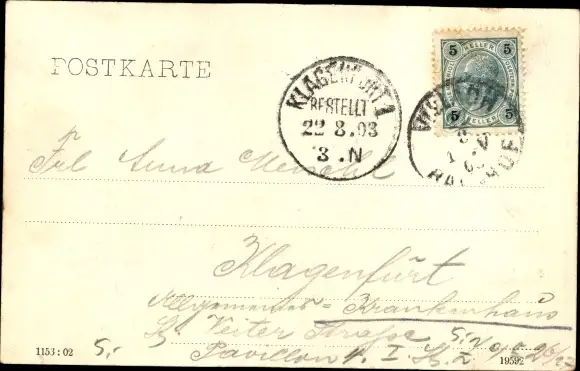 POSTKARTE
5 HELLER 5
5 HELLER 5
KLAGENFURT 1
BESTELLT
22 8.03
3 .N
BAHNHOF
Frl Anna
Klagenfurt
Allgemeines = Krankenhaus
St Veiter Straße
Pavillon 4. I. St.
5,-
1153 : 02
19592